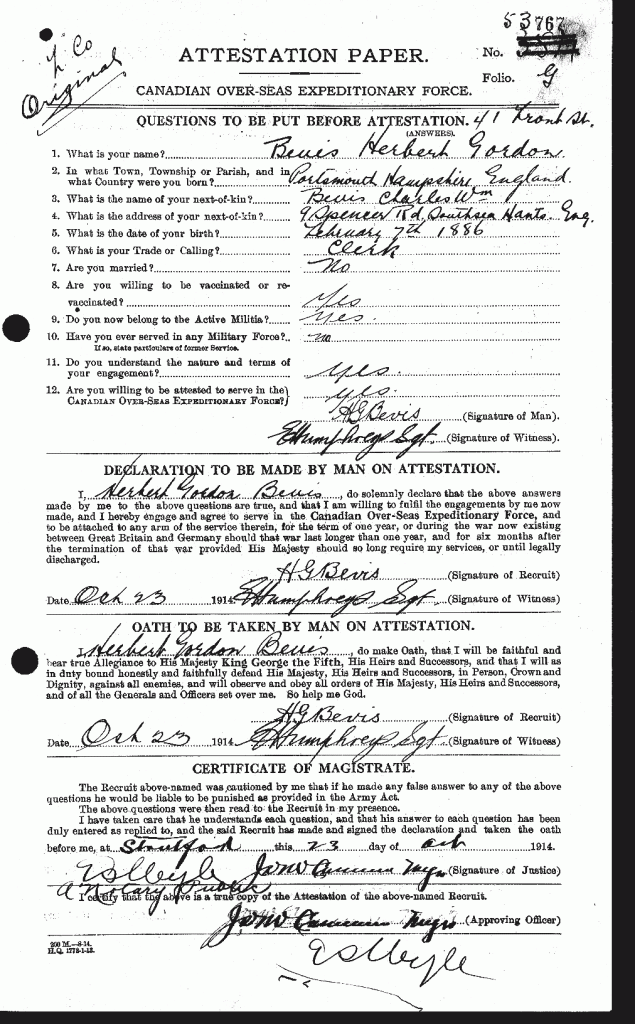 53767
Co
Original
ATTESTATION PAPER.
No.
Folio. G
CANADIAN OVER-SEAS EXPEDITIONARY FORCE.
QUESTIONS TO BE PUT BEFORE ATTESTATION. 41 Front St.
(ANSWERS).
1. What is your name? Bevis Herbert Gordon
2. In what Town, Township or Parish, and in
what Country were you born? Portsmouth Hampshire England
3. What is the name of your next-of-kin? Bevis Charles Wm
4. What is the address of your next-of-kin? 9 Spencer Rd, Southsea Hants. Eng.
5. What is the date of your birth? February 7th 1886
6. What is your Trade or Calling? Clerk
7. Are you married? No
8. Are you willing to be vaccinated or re-
vaccinated? Yes
9. Do you now belong to the Active Militia? Yes.
10. Have you ever served in any Military Force? no
If so, state particulars of former Service.
11. Do you understand the nature and terms of
your engagement? yes.
12. Are you willing to be attested to serve in the
CANADIAN OVER-SEAS EXPEDITIONARY FORCE? yes.
H G Bevis (Signature of Man).
E Humphreys Sgt. (Signature of Witness).
DECLARATION TO BE MADE BY MAN ON ATTESTATION.
I, Herbert Gordon Bevis, do solemnly declare that the above answers
made by me to the above questions are true, and that I am willing to fulfil the engagements by me now
made, and I hereby engage and agree to serve in the Canadian Over-Seas Expeditionary Force, and
to be attached to any arm of the service therein, for the term of one year, or during the war now existing
between Great Britain and Germany should that war last longer than one year, and for six months after
the termination of that war provided His Majesty should so long require my services, or until legally
discharged.
H G Bevis (Signature of Recruit)
Date Oct 23 1914. E Humphreys Sgt. (Signature of Witness)
OATH TO BE TAKEN BY MAN ON ATTESTATION.
I, Herbert Gordon Bevis, do make Oath, that I will be faithful and
bear true Allegiance to His Majesty King George the Fifth, His Heirs and Successors, and that I will as
in duty bound honestly and faithfully defend His Majesty, His Heirs and Successors, in Person, Crown and
Dignity, against all enemies, and will observe and obey all orders of His Majesty, His Heirs and Successors,
and of all the Generals and Officers set over me. So help me God.
H G Bevis (Signature of Recruit)
Date Oct 23 1914 E Humphreys Sgt. (Signature of Witness)
CERTIFICATE OF MAGISTRATE.
The Recruit above-named was cautioned by me that if he made any false answer to any of the above
questions he would be liable to be punished as provided in the Army Act.
The above questions were then read to the Recruit in my presence.
I have taken care that he understands each question, and that his answer to each question has been
duly entered as replied to, and the said Recruit has made and signed the declaration and taken the oath
before me, at Stratford this 23 day of Oct 1914.
(Signature of Justice)
A Notary Public
I certify that the above is a true copy of the Attestation of the above-named Recruit.
(Approving Officer)
200 M.—8-14.
H.Q. 1772-1-13.